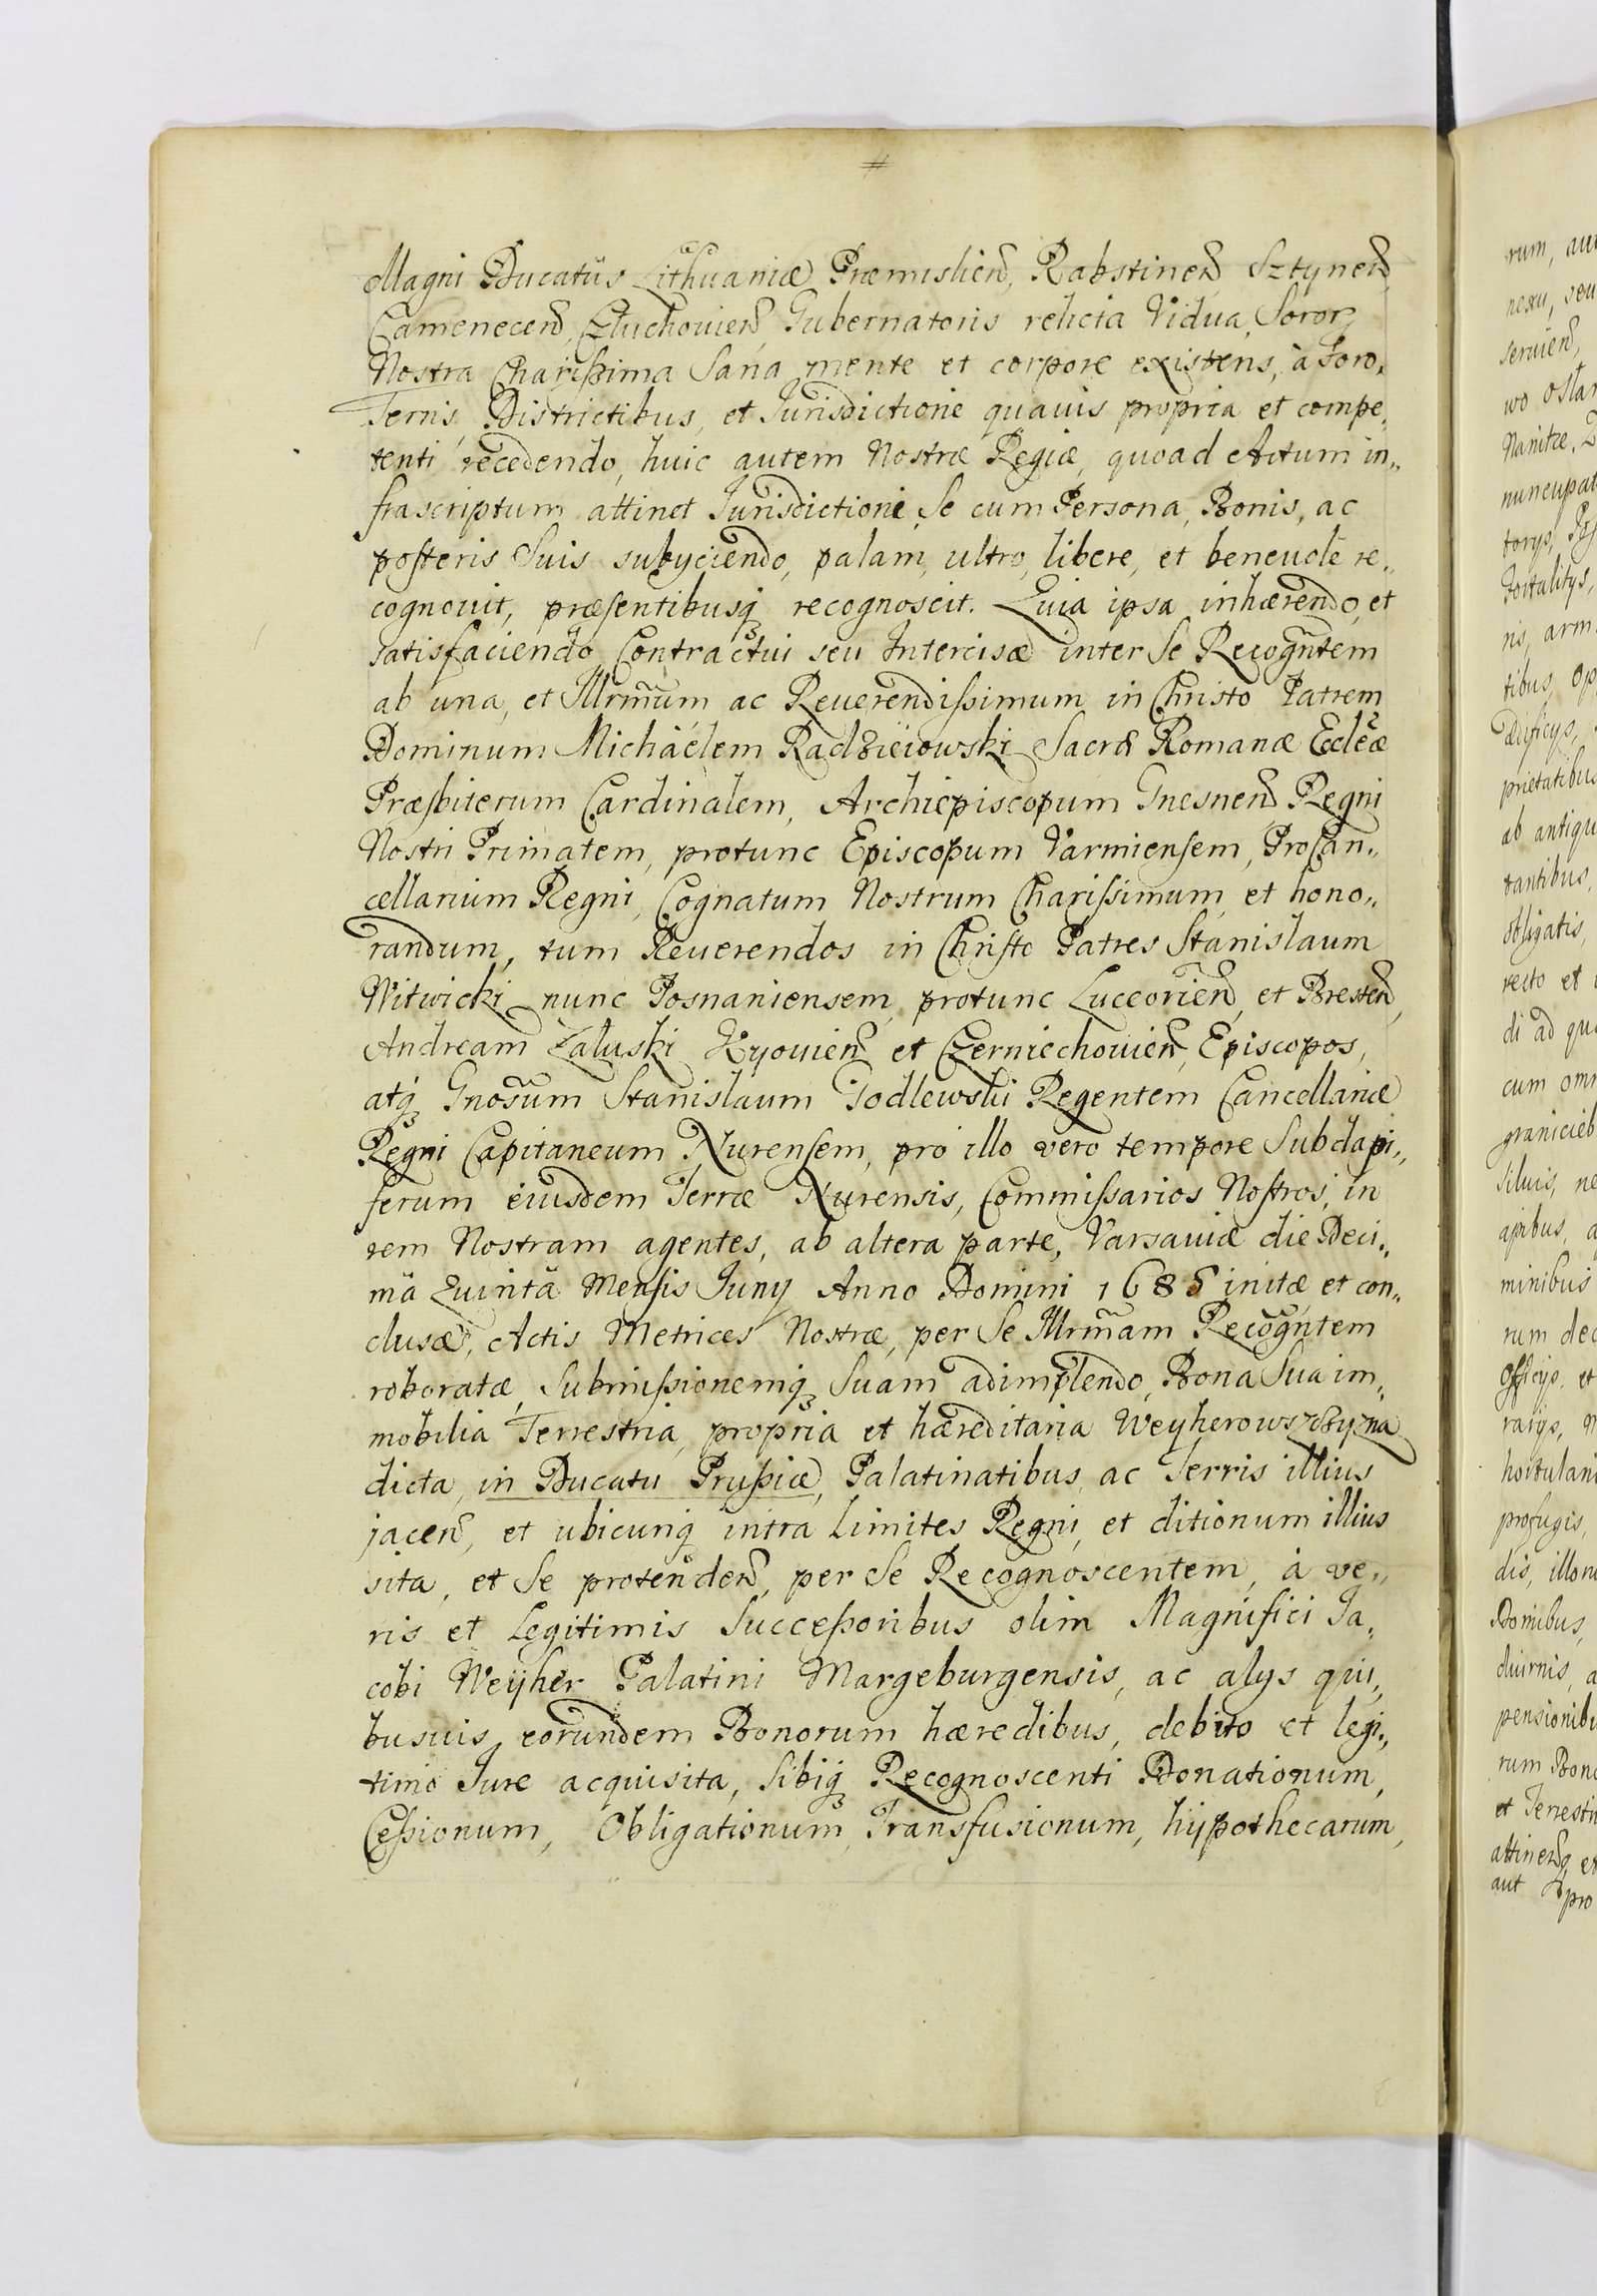 #
Magni Ducatûs Lithuaniæ Præmislien̄, Rabstinen̄ Sztynen̄
Camenecen̄, Człuchouien̄ Gubernatoris relicta Vidua, Soror
Nostra Charißima Sana mente et corpore existens, à Foro,
Terris Districtibus, et Jurisdictione quavis propria et compe„
tenti recedendo, huic autem Nostræ Regiæ, quoad Actum in„
frascriptum attinet Jurisdictioni, Se cum Persona, Bonis, ac
posteris Suis subyciendo, palam, ultro, libere, et beneuole re„
cognouit, præsentibusq́ recognoscit. Quia ipsa inhærendo, et
satisfaciendo Contractui seu Intercisæ inter Se Recogñtem
ab una, et Illrm̃um ac Reuerendissimum in Christo Patrem
Dominum Michäelem Radzieiowski Sacræ Romanæ Eccleæ̃
Præsbiterum Cardinalem, Archiepiscopum Gnesnen̄ Regni
Nostri Primatem, protunc Episcopum Varmiensem, ProCan„
cellarium Regni, Cognatum Nostrum Charissimum, et hono„
randum, tum Reuerendos in Christo Patres Stanislaum
Witwicki nunc Posnaniensem, protunc Luceorien̄, et Bresten̄,
Andream Załuski Kyouien̄ et Czerniechouien̄, Episcopos,
atq́ Gnosũm Stanislaum Godlewski Regentem Cancellariæ
Regni Capitaneum Nurensem, pro illo vero tempore Subdapi„
ferum eiusdem Terræ Nurensis, Commissarios Nostros, in
rem Nostram agentes, ab altera parte, Varsauiæ die Deci„
mâ Quintâ Mensis Juny Anno Domini 1685 initæ et con„
clusæ, Actis Metrices Nostræ, per Se Illrm̃am Recogñtem
roboratæ, Submißionemq́ Suam adimplendo, Bona Sua im„
mobilia Terrestria, propria et hæreditaria Weyherowszczyzna
dicta, in Ducatu Prußiæ, Palatinatibus, ac Terris illius
jacen̄, et ubicunq́ intra Limites Regni, et ditionum illius
sita, et Se protenden̄, per Se Recognoscentem, à ve„
ris et Legitimis Succeßoribus olim Magnifici Ja„
cobi Weyher Palatini Margeburgensis, ac alys qui„
busuis eorundem Bonorum hæredibus, debito et legi„
timo Jure acquisita, Sibiq́ Recognoscenti Donationum,
Ceßionum, Obligationum, Transfusionum, hypothecarum,